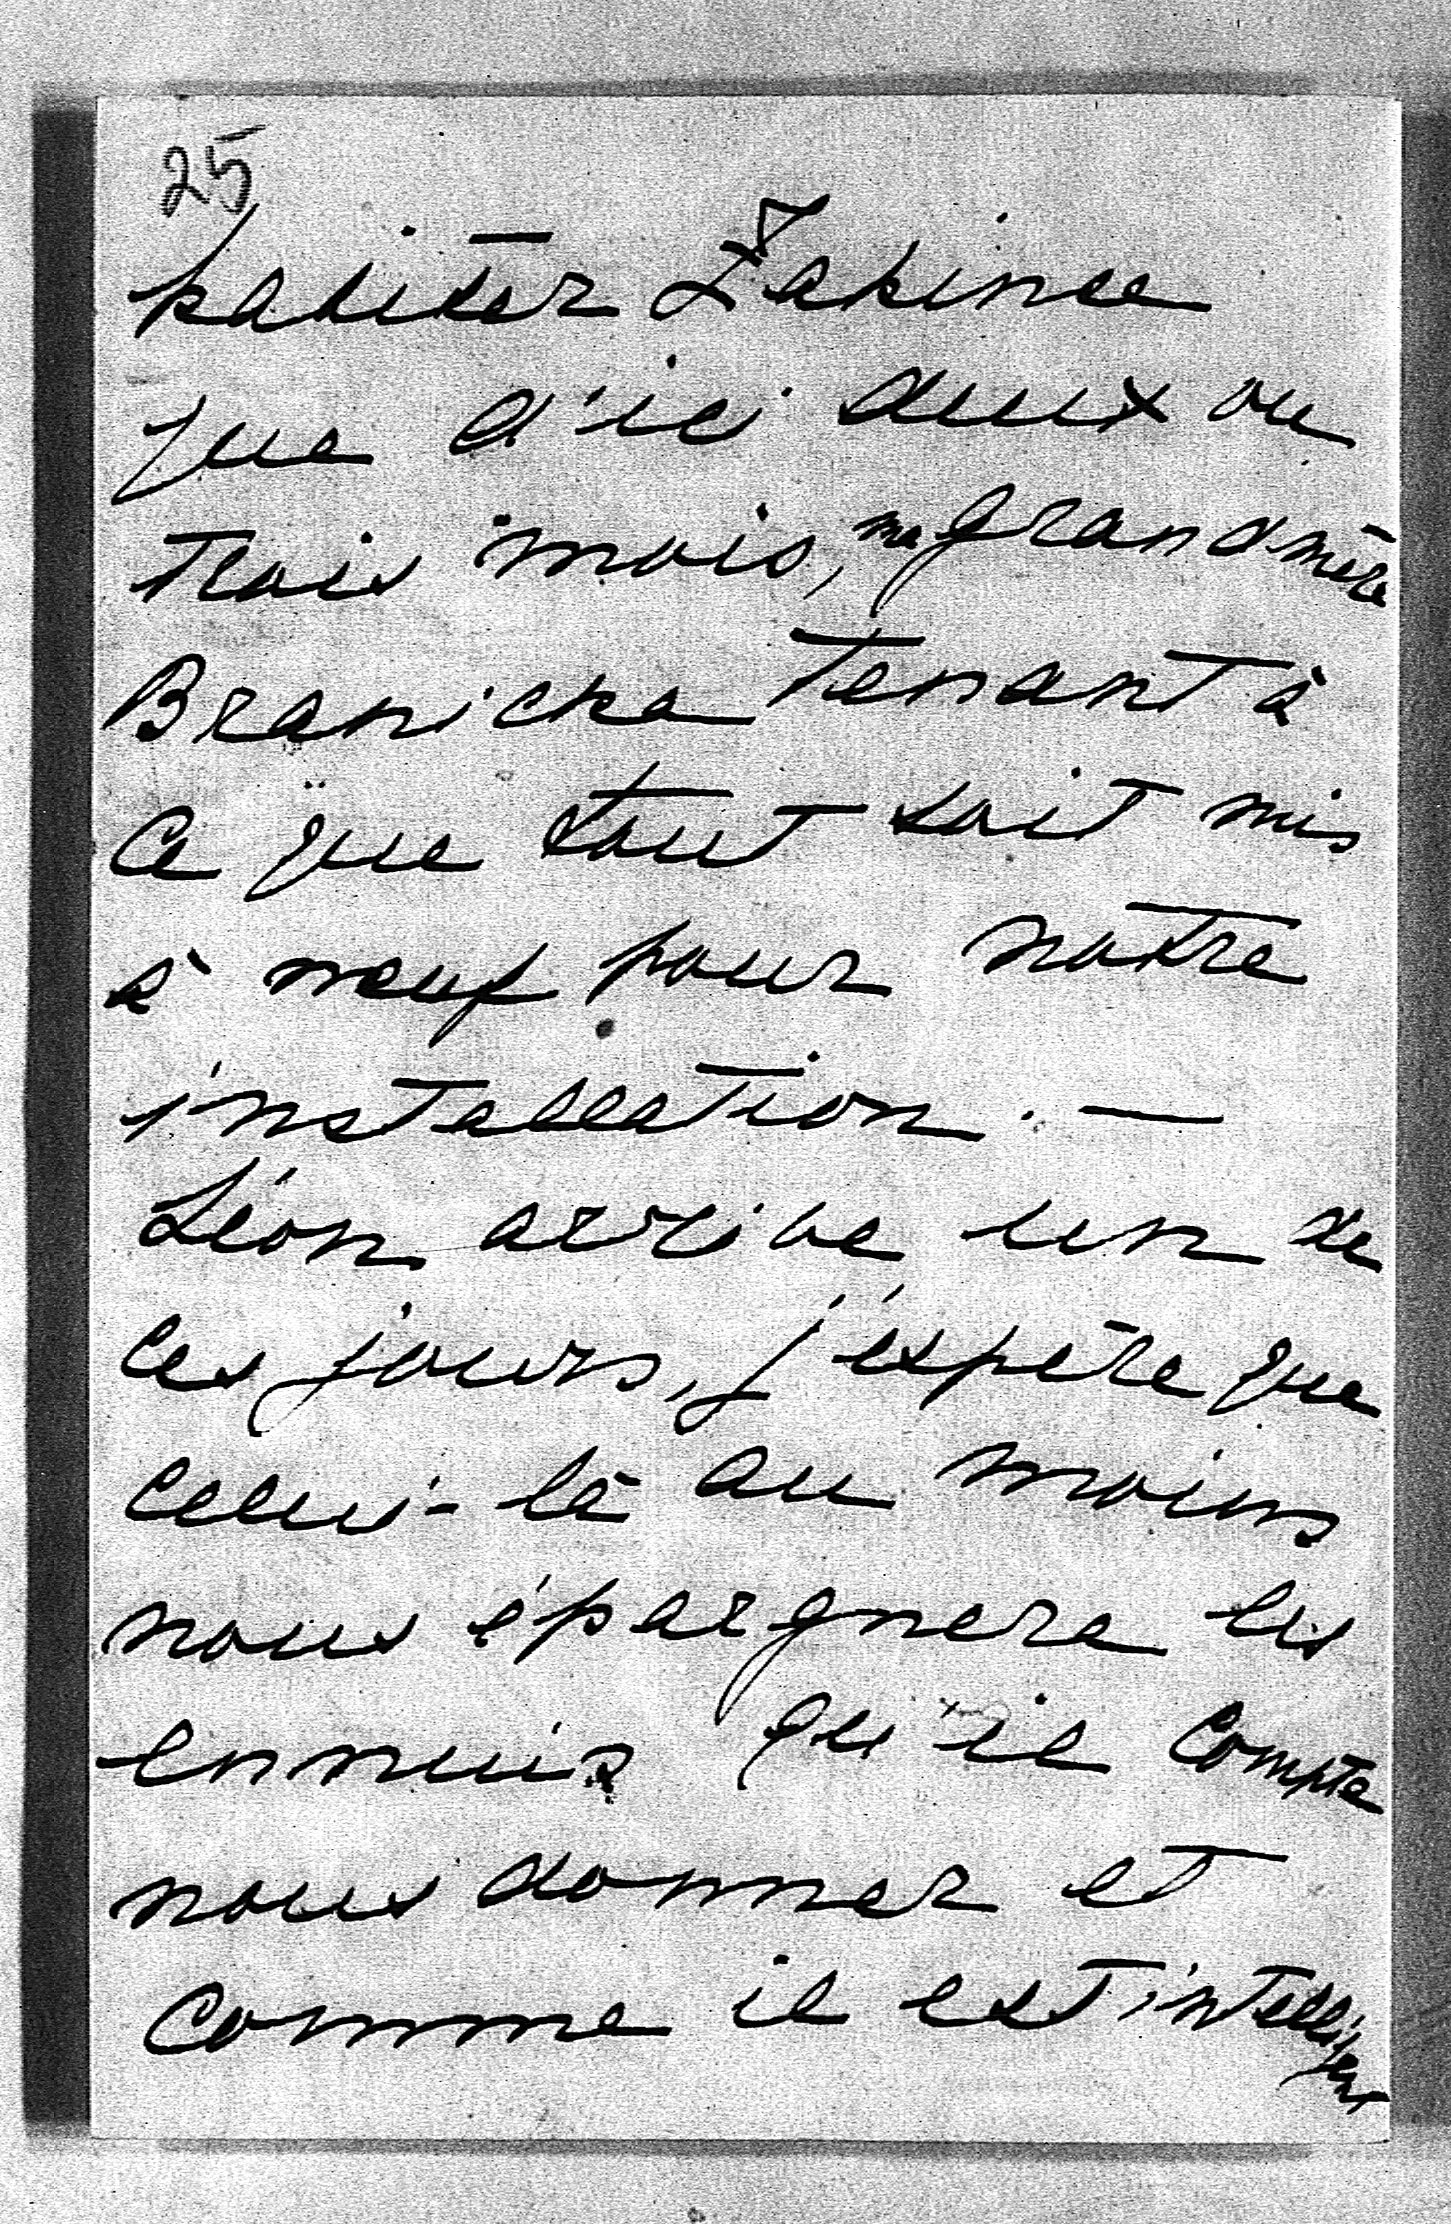 25
habiter Żakince
que d'ici deux ou
trois mois, ma grand mère
Branicka tenant à
ce que tout soit mis
à neuf pour notre
installation. —
Léon arrive un de
ces jours, j'espère que
celui-là au moins
nous épargnera les
ennuis qu'il compte
nous donner et
comme il est intelligent